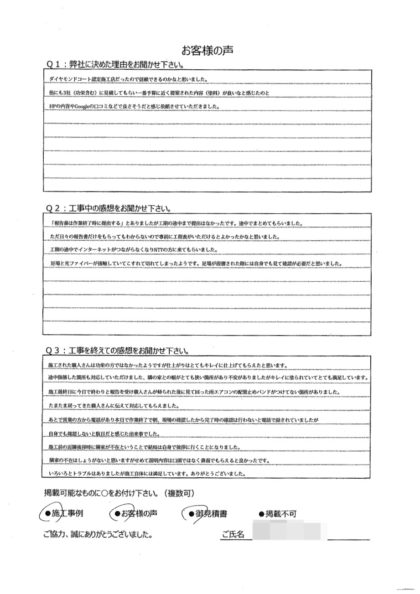 お客様の声
Q1：弊社に決めた理由をお聞かせ下さい。
ダイヤモンドコート認定施工店だったので信頼できるのかなと思いました。
他にも3社（功栄含む）に見積してもらい一番予算に近く提案された内容（塗料）が良いなと感じたのと
HPの内容やGoogleの口コミなどで良さそうだと感じ依頼させていただきました。
Q2：工事中の感想をお聞かせ下さい。
「報告書は作業終了時に提出する」とありましたが工期の途中まで提出はなかったです。途中でまとめてもらいました。
ただ日々の報告書だけをもらってもわからないので事前に工程表がいただけるとよかったかなと思いました。
工期の途中でインターネットがつながらなくなりNTTの方に来てもらいました。
足場と光ファイバーが接触していてこすれて切れてしまったようです。足場が設置された際には自身でも見て確認が必要だと思いました。
Q3：工事を終えての感想をお聞かせ下さい。
施工された職人さんは功栄の方ではなかったようですが仕上がりはとてもキレイに仕上げてもらえたと思います。
途中指摘した箇所も対応していただけました、隣の家との幅がとても狭い箇所があり不安がありましたがキレイに塗られていてとても満足しています。
施工最終日に今日で終わりと報告を受け職人さんが帰られた後に見て回った所エアコンの配管止めバンドがつけてない箇所がありました。
たまたま戻ってきた職人さんに伝えて対応してもらえました。
あとで営業の方から電話があり本日で作業終了で制、現場の確認したから完了時の確認は行わないと電話で話されていましたが
自身でも確認しないと駄目だと感じた出来事でした。
施工前の近隣挨拶時に隣家が不在ということで結局は自身で挨拶に行くことになりました。
隣家の不在はしょうがないと思いますがせめて説明内容は口頭ではなく書面でもらえると良かったです。
いろいろとトラブルはありましたが施工自体には満足しています。ありがとうございました。
掲載可能なものに○をお付け下さい。（複数可）
●施工事例 ●お客様の声 ●御見積書 ●掲載不可
ご協力、誠にありがとうございました。 ご氏名